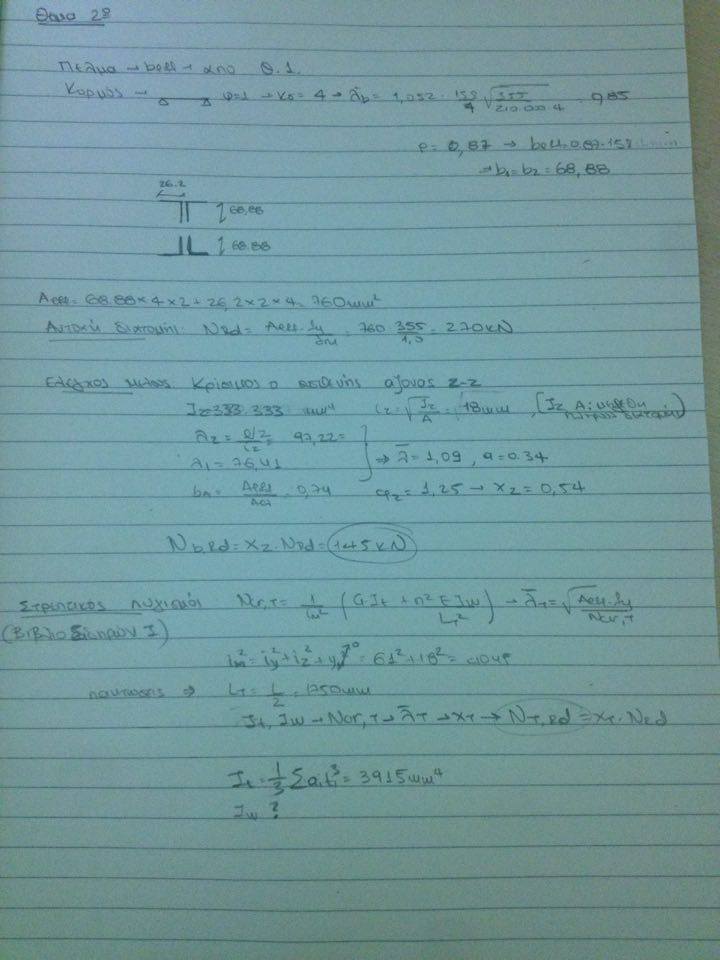 Θέμα 2º
Πέλμα → beff → από Θ.1.
Κορμός → ψ=1 → Kσ = 4 → λ̄b = 1,052 · 158/4 √355/210.000·4 = 0,85
ρ = 0,87 → beff=0.87·158
→ b1=b2=68,88
26.2
68,88
68.88
Aeff = 68.88×4×2+26,2×2×4=760mm²
Αντοχή διατομής: NRd = Aeff·fy/γM = 760 355/1,0 = 270kN
Έλεγχος μέλους: Κρίσιμος ο ασθενής άξονας z-z
Iz=333.333 mm⁴ iz=√Iz/A = 18mm, [Iz, A:
λz = =97,22
λ1 = 76,41
bA = Aeff/ = 0,74
⇒ λ̄=1,09, α=0.34
φz = 1,25 → χz = 0,54
Nb,Rd = χz·NRd = 145kN
Στρεπτικός λυγισμός Ncr,T = 1/im² (G·It + π²EIw/LT²) → λ̄T=√Aeff·fy/Ncr,T
(Βιβλίο Σιδηρών I)
im² = iy²+iz²+y0² = 61²+18² =
⇒ LT = L/2 = 1750mm
It, Iw → Ncr,T → λ̄T → χT → NT,Rd = χT·NRd
It = 1/3 Σaiti³ = 3915mm⁴
Iw ?